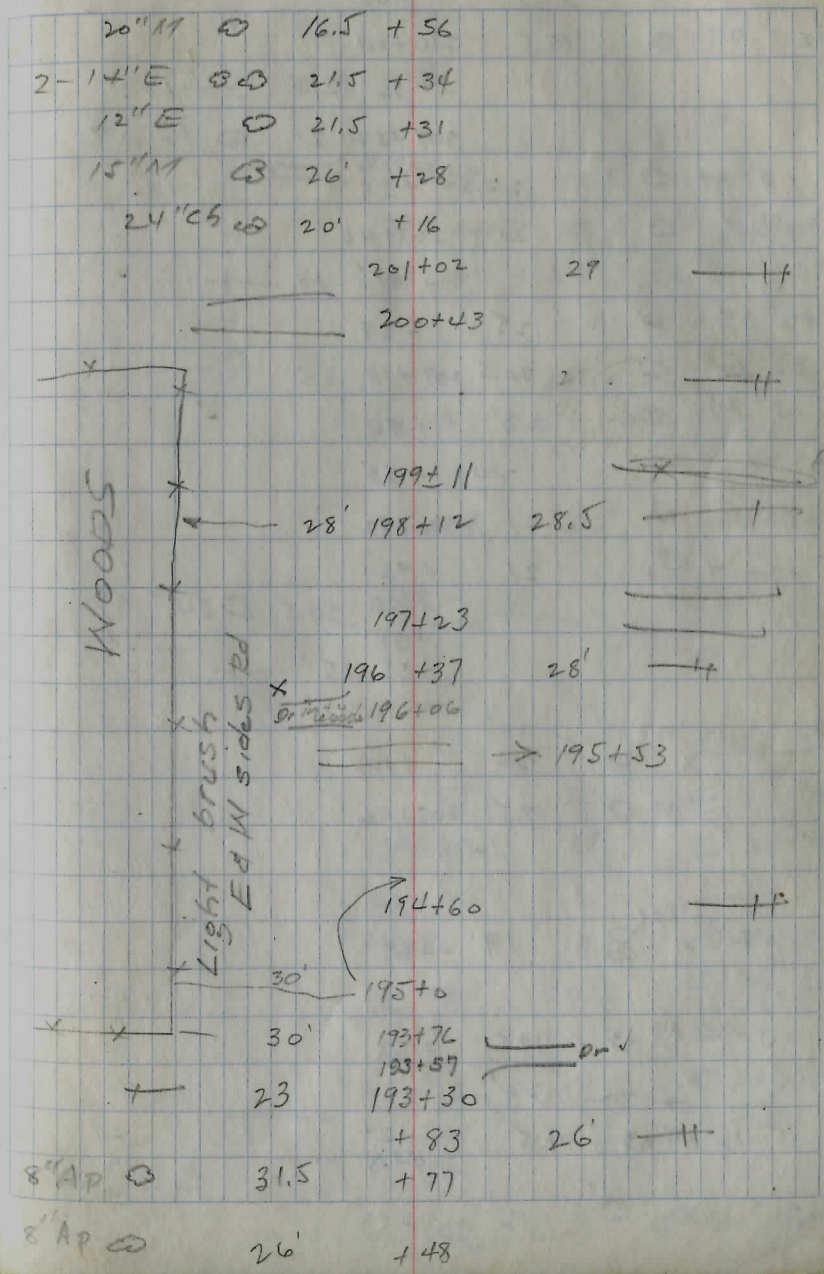 20" M 16.5 + 56
2 - 14" E 21.5 + 34
12" E 21.5 +31
15" M 26' +28
24" Ch 20' + 16
201+02 29
200+43
199±11
28' 198+12 28.5
197+23
196 +37 28'
196+06
195+53
WOODS
Light brush
E & W sides Rd
194+60
30' 195+0
30' 193+76
Dr
193+57
23 193+30
+ 83 26'
8" Ap 31.5 + 77
8" Ap 26' + 48